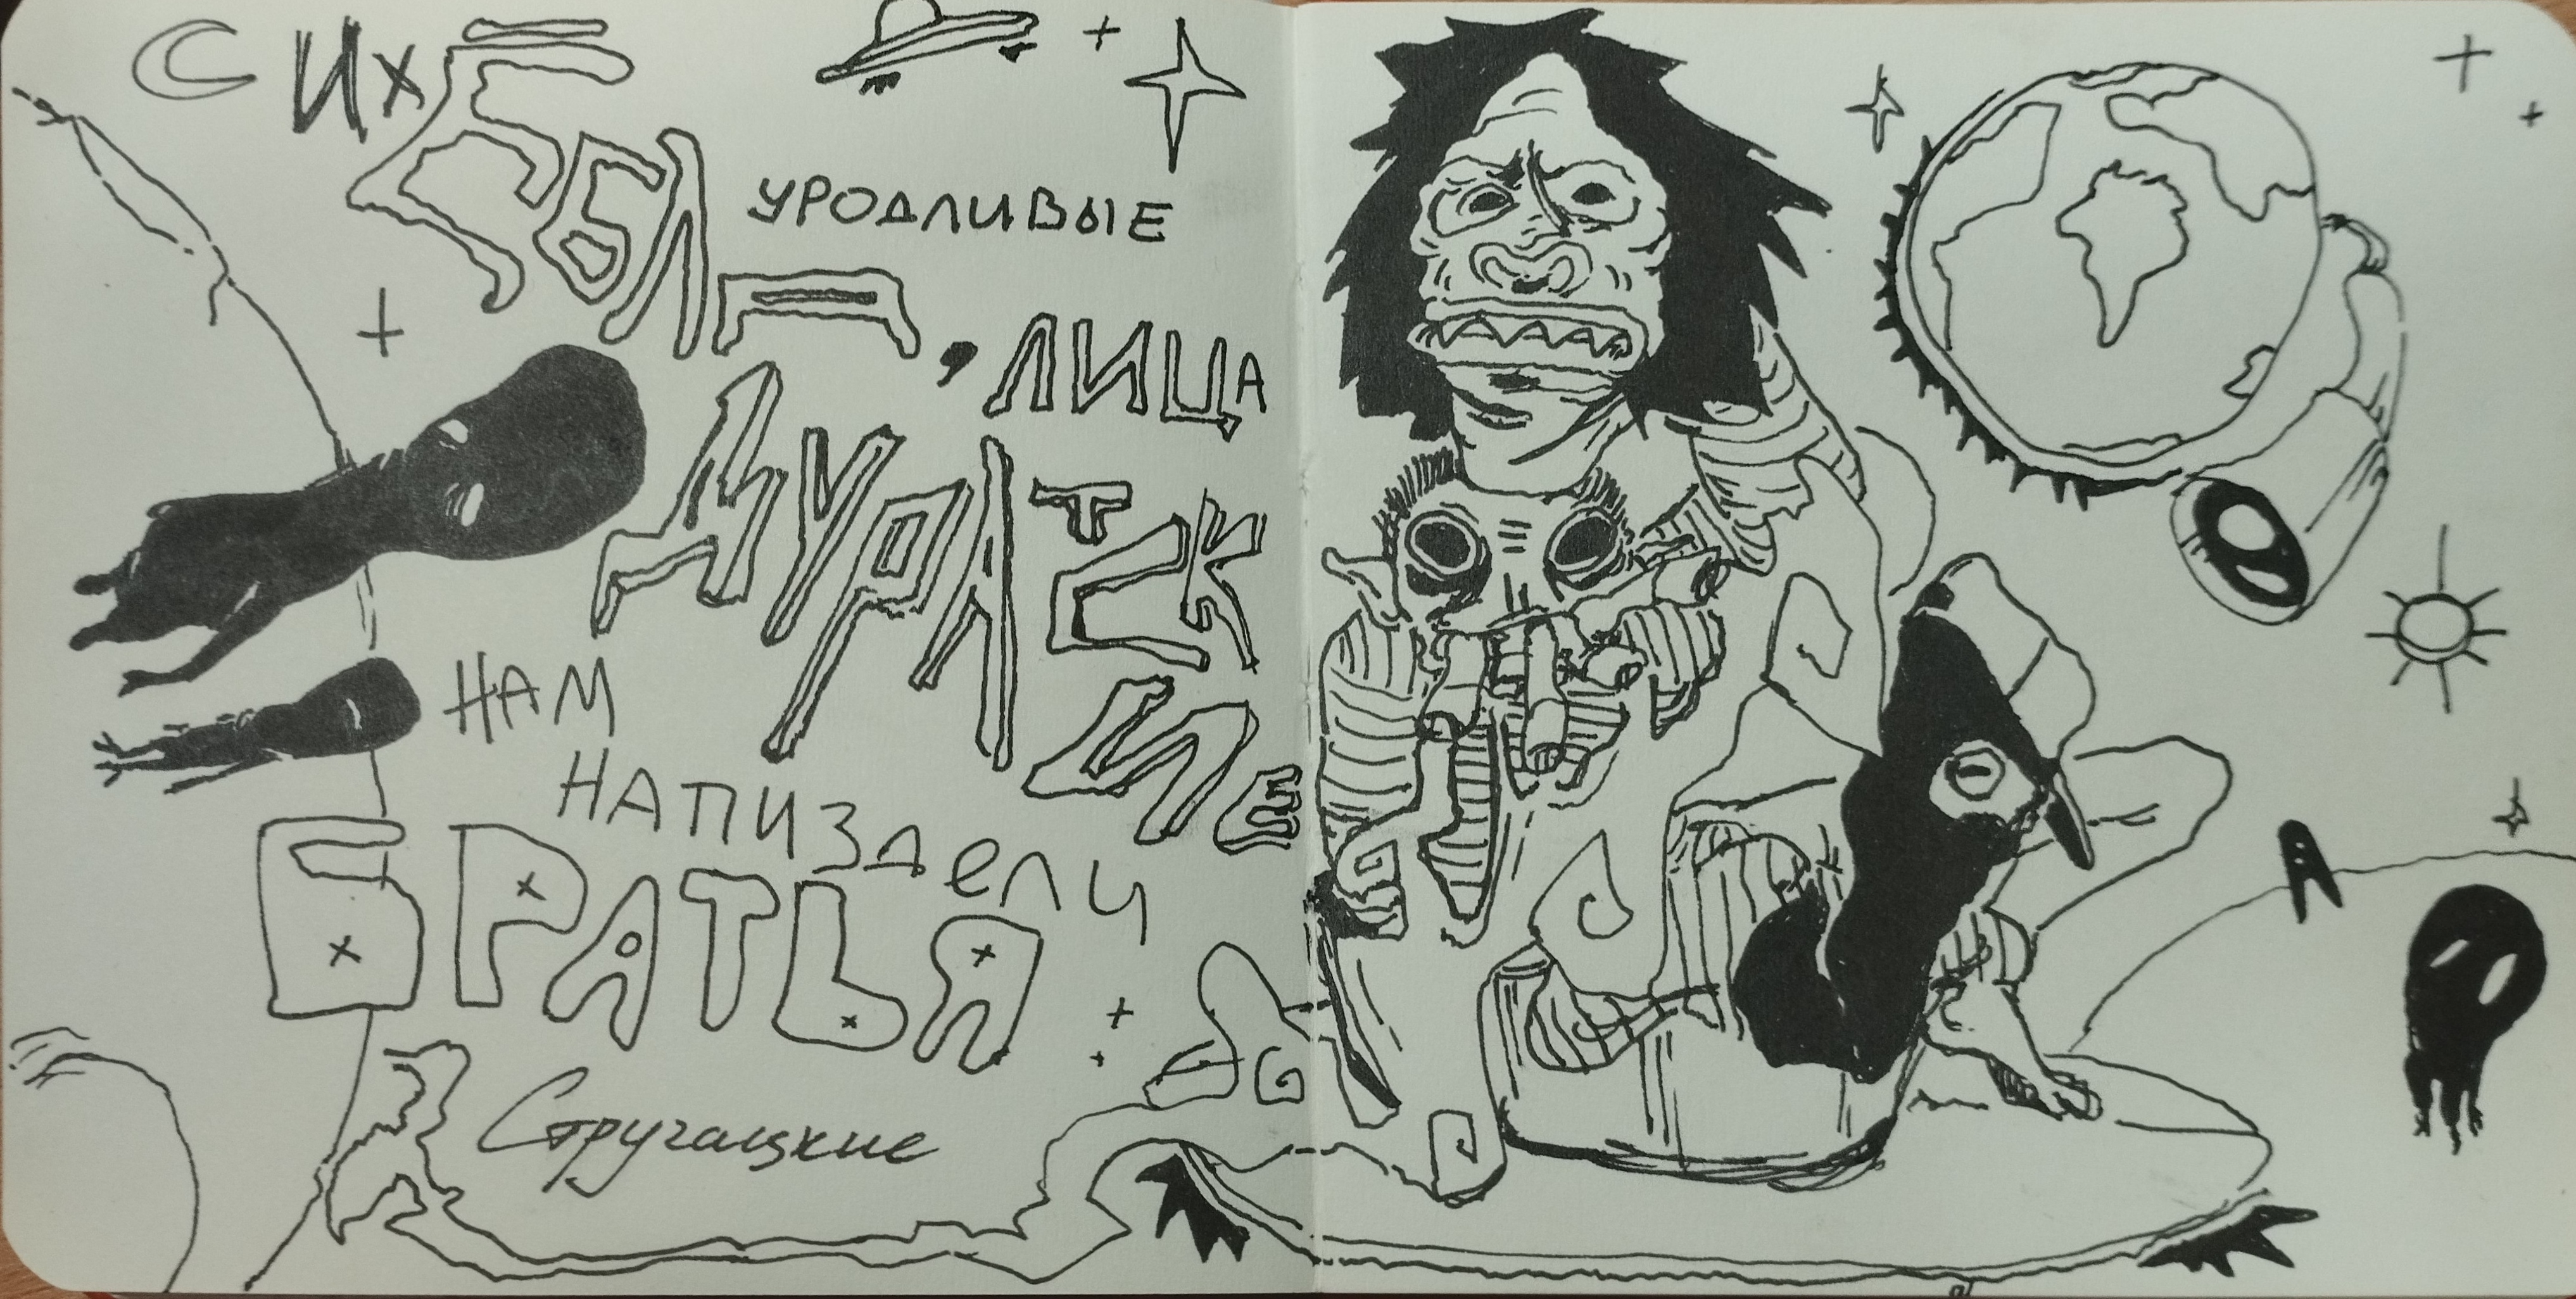 Их ЕБЛА
УРОДЛИВЫЕ
, ЛИЦА
ДУРАТСКИЕ
НАМ
НАПИЗДЕЛИ
БРАТЬЯ
Стругацкие